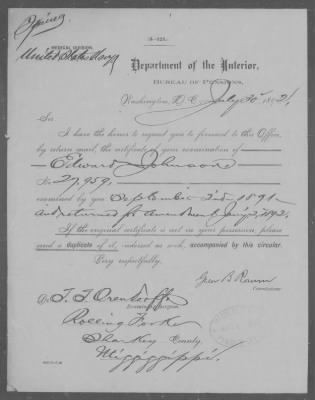 (3-428.)
MEDICAL DIVISION.
United States Navy
Department of the Interior,
BUREAU OF PENSIONS,
Washington, D.C., July 30, 1892
Sir:
I have the honor to request you to forward to this Office,
by return mail, the certificate of your examination of
Edward Johnson
No. 27,959,
examined by you September 2d 1891
and returned for amendment 1892.
If the original certificate is not in your possession, please
send a duplicate of it, endorsed as such, accompanied by this circular.
Very respectfully,
Green B. Raum
Commissioner.
Dr. T. T. Orendorff
Examining Surgeon,
Rolling Fork
Sharkey County,
Mississippi